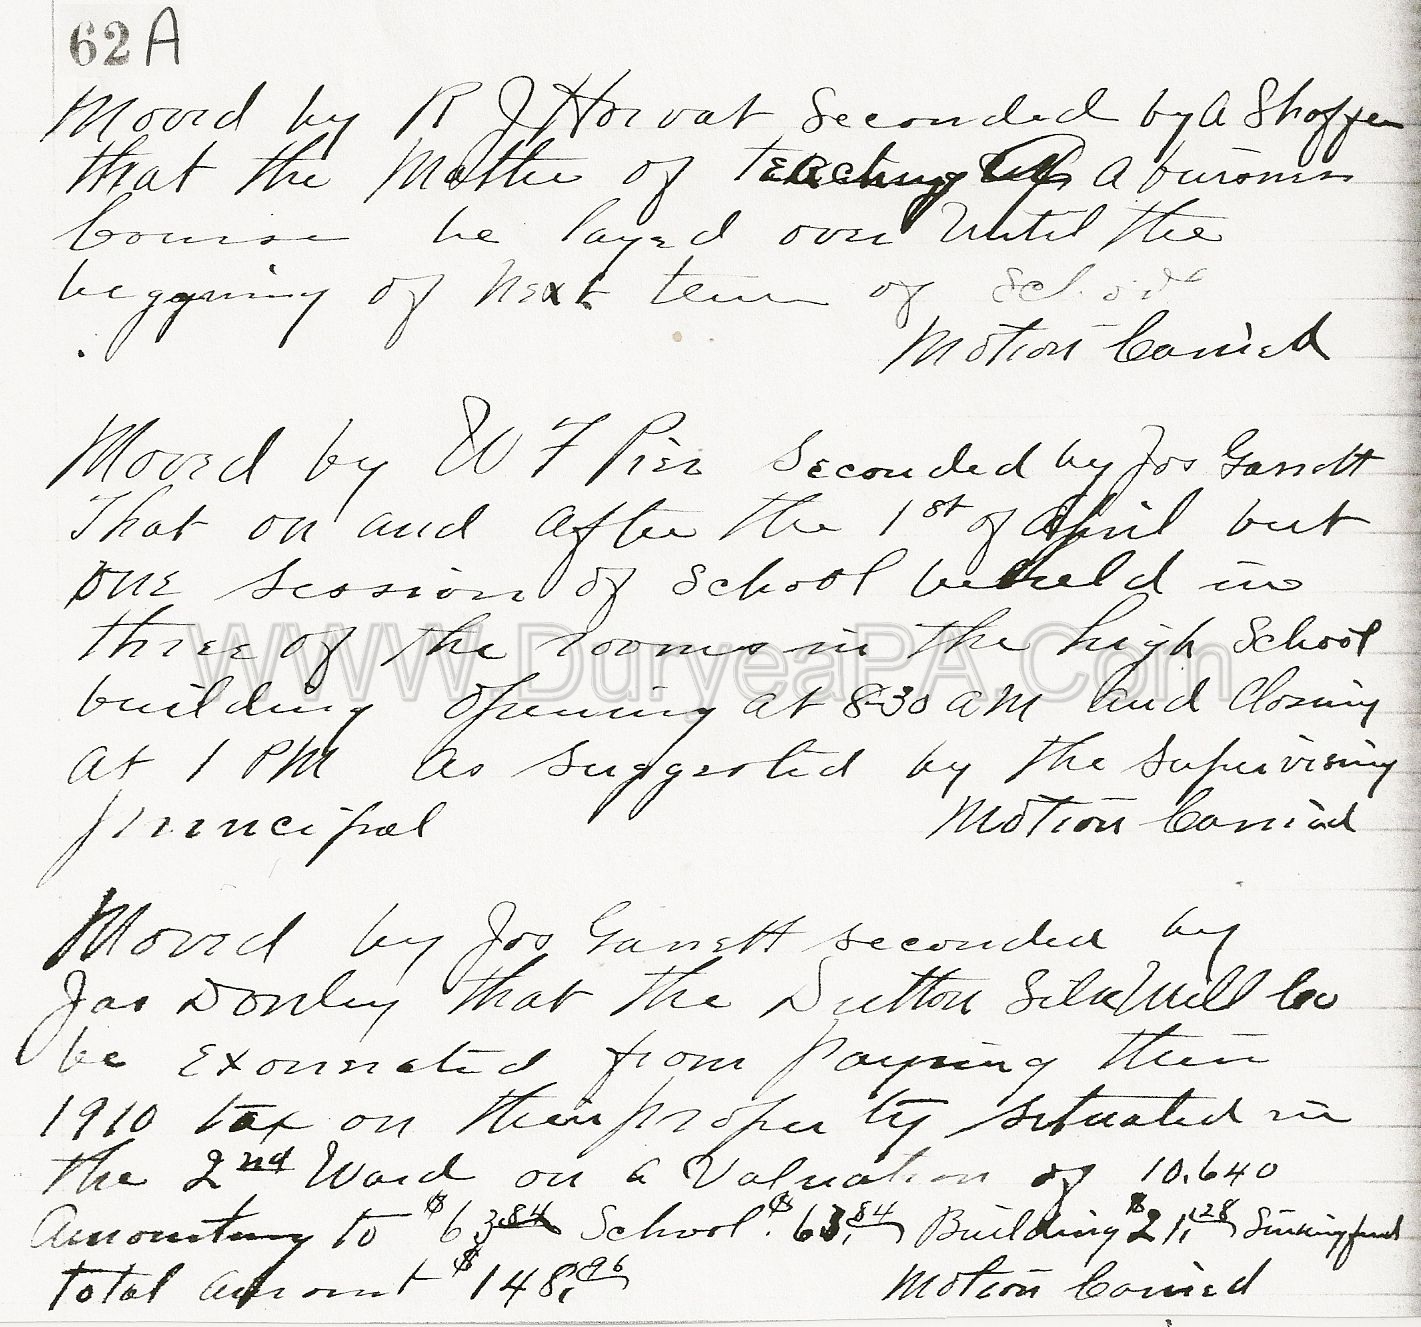 62 A
Moved by R J Horvat Seconded by A Shaffer
that the Matter of teaching A business
Course be layed over until the
beggining of next term of School
Motion Carried
Moved by W F Pier Seconded by Jos Garrett
That on and after the 1st of April but
one session of School be held in
three of the rooms in the high School
WWW.DuryeaPA.Com
building opening at 8-30 AM and Closing
at 1 PM as suggested by the supervising
principal Motion Carried
Moved by Jos Garrett seconded by
Jas Donley that the Dutton Silk Mill Co
be exonerated from paying their
1910 tax on their property situated in
the 2nd Ward on a Valuation of 10.640
Amounting to $63.84 School. $63.84 Building $21.28 Sinking fund
total amount $148.96 Motion Carried